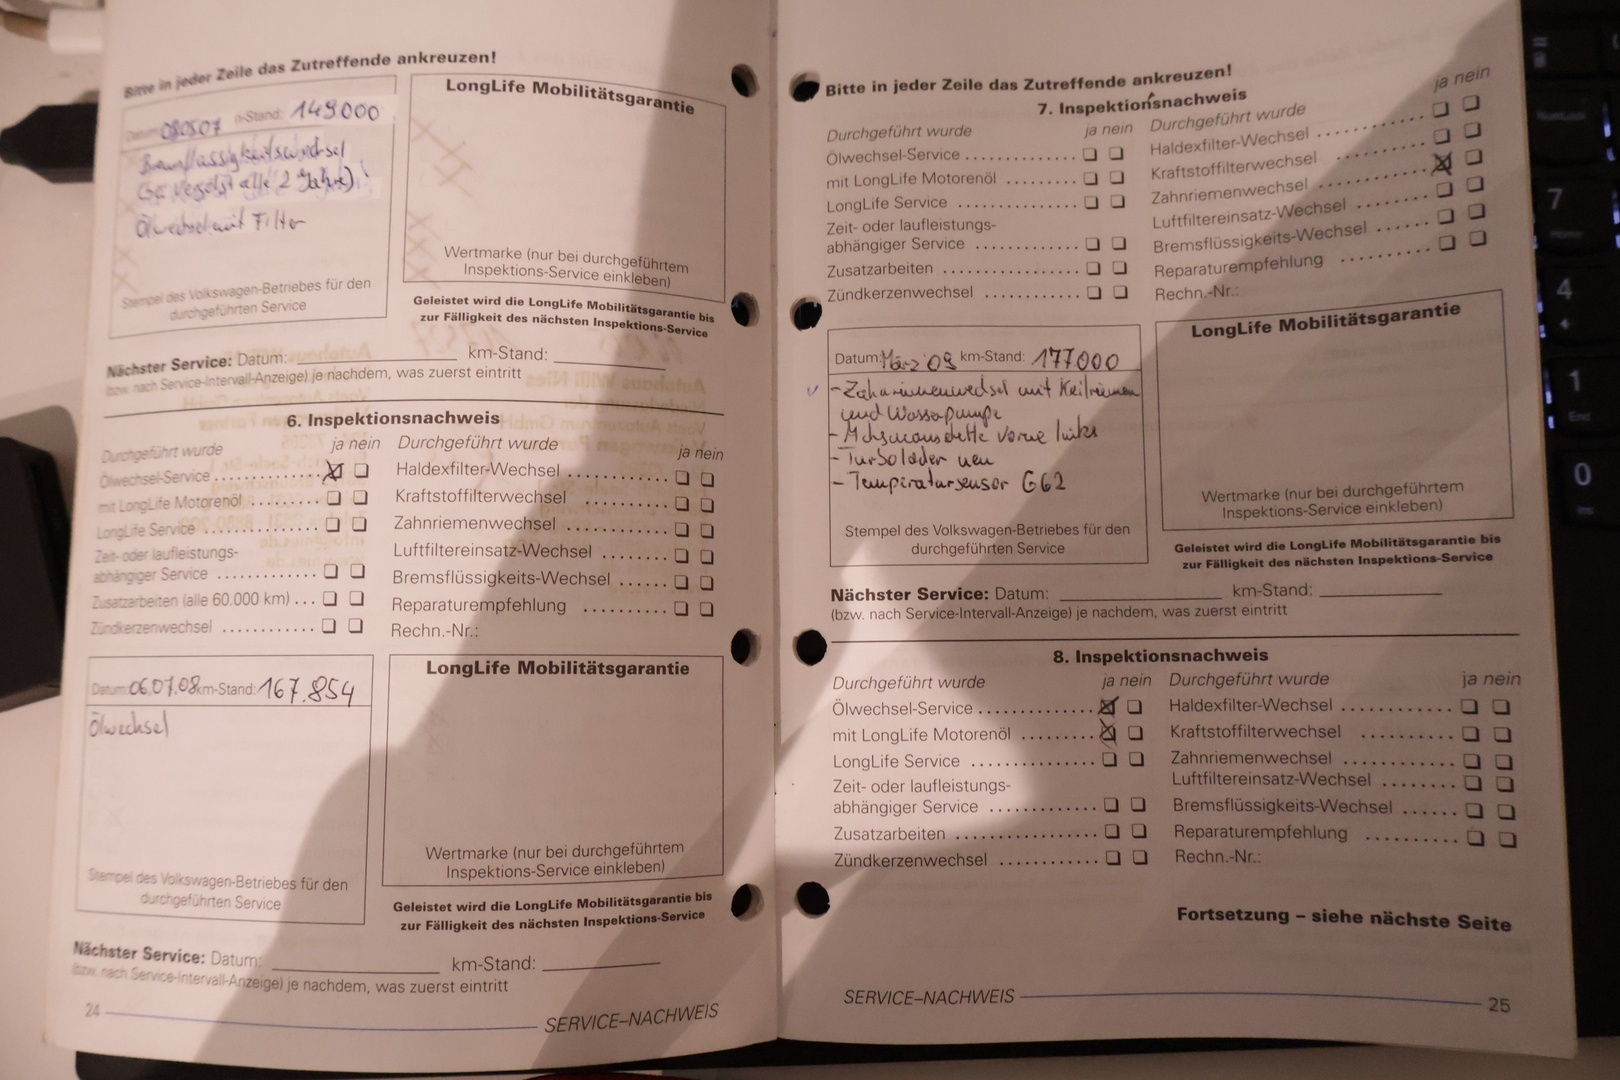 Bitte in jeder Zeile das Zutreffende ankreuzen!
149000
Ölwechsel mit Filter
Stempel des Volkswagen-Betriebes für den
durchgeführten Service
LongLife Mobilitätsgarantie
Wertmarke (nur bei durchgeführtem
Inspektions-Service einkleben)
Geleistet wird die LongLife Mobilitätsgarantie bis
zur Fälligkeit des nächsten Inspektions-Service
Nächster Service: Datum: km-Stand:
(bzw. nach Service-Intervall-Anzeige) je nachdem, was zuerst eintritt
6. Inspektionsnachweis
Durchgeführt wurde ja nein
Ölwechsel-Service
mit LongLife Motorenöl
LongLife Service
Zeit- oder laufleistungs-
abhängiger Service
Zusatzarbeiten (alle 60.000 km)
Zündkerzenwechsel
Durchgeführt wurde ja nein
Haldexfilter-Wechsel
Kraftstoffilterwechsel
Zahnriemenwechsel
Luftfiltereinsatz-Wechsel
Bremsflüssigkeits-Wechsel
Reparaturempfehlung
Rechn.-Nr.:
Datum: 06.07.08 km-Stand: 167.854
Ölwechsel
Stempel des Volkswagen-Betriebes für den
durchgeführten Service
LongLife Mobilitätsgarantie
Wertmarke (nur bei durchgeführtem
Inspektions-Service einkleben)
Geleistet wird die LongLife Mobilitätsgarantie bis
zur Fälligkeit des nächsten Inspektions-Service
Nächster Service: Datum: km-Stand:
(bzw. nach Service-Intervall-Anzeige) je nachdem, was zuerst eintritt
24 SERVICE–NACHWEIS
Bitte in jeder Zeile das Zutreffende ankreuzen!
7. Inspektionsnachweis
Durchgeführt wurde ja nein
Ölwechsel-Service
mit LongLife Motorenöl
LongLife Service
Zeit- oder laufleistungs-
abhängiger Service
Zusatzarbeiten
Zündkerzenwechsel
Durchgeführt wurde ja nein
Haldexfilter-Wechsel
Kraftstoffilterwechsel
Zahnriemenwechsel
Luftfiltereinsatz-Wechsel
Bremsflüssigkeits-Wechsel
Reparaturempfehlung
Rechn.-Nr.:
Datum: März 09 km-Stand: 177000
- Zahnriemenwechsel mit Keilriemen
und Wasserpumpe
- vorne links
- Turbolader neu
- Temperatursensor G62
Stempel des Volkswagen-Betriebes für den
durchgeführten Service
LongLife Mobilitätsgarantie
Wertmarke (nur bei durchgeführtem
Inspektions-Service einkleben)
Geleistet wird die LongLife Mobilitätsgarantie bis
zur Fälligkeit des nächsten Inspektions-Service
Nächster Service: Datum: km-Stand:
(bzw. nach Service-Intervall-Anzeige) je nachdem, was zuerst eintritt
8. Inspektionsnachweis
Durchgeführt wurde ja nein
Ölwechsel-Service
mit LongLife Motorenöl
LongLife Service
Zeit- oder laufleistungs-
abhängiger Service
Zusatzarbeiten
Zündkerzenwechsel
Durchgeführt wurde ja nein
Haldexfilter-Wechsel
Kraftstoffilterwechsel
Zahnriemenwechsel
Luftfiltereinsatz-Wechsel
Bremsflüssigkeits-Wechsel
Reparaturempfehlung
Rechn.-Nr.:
Fortsetzung – siehe nächste Seite
SERVICE–NACHWEIS 25
7
4
1
End
0